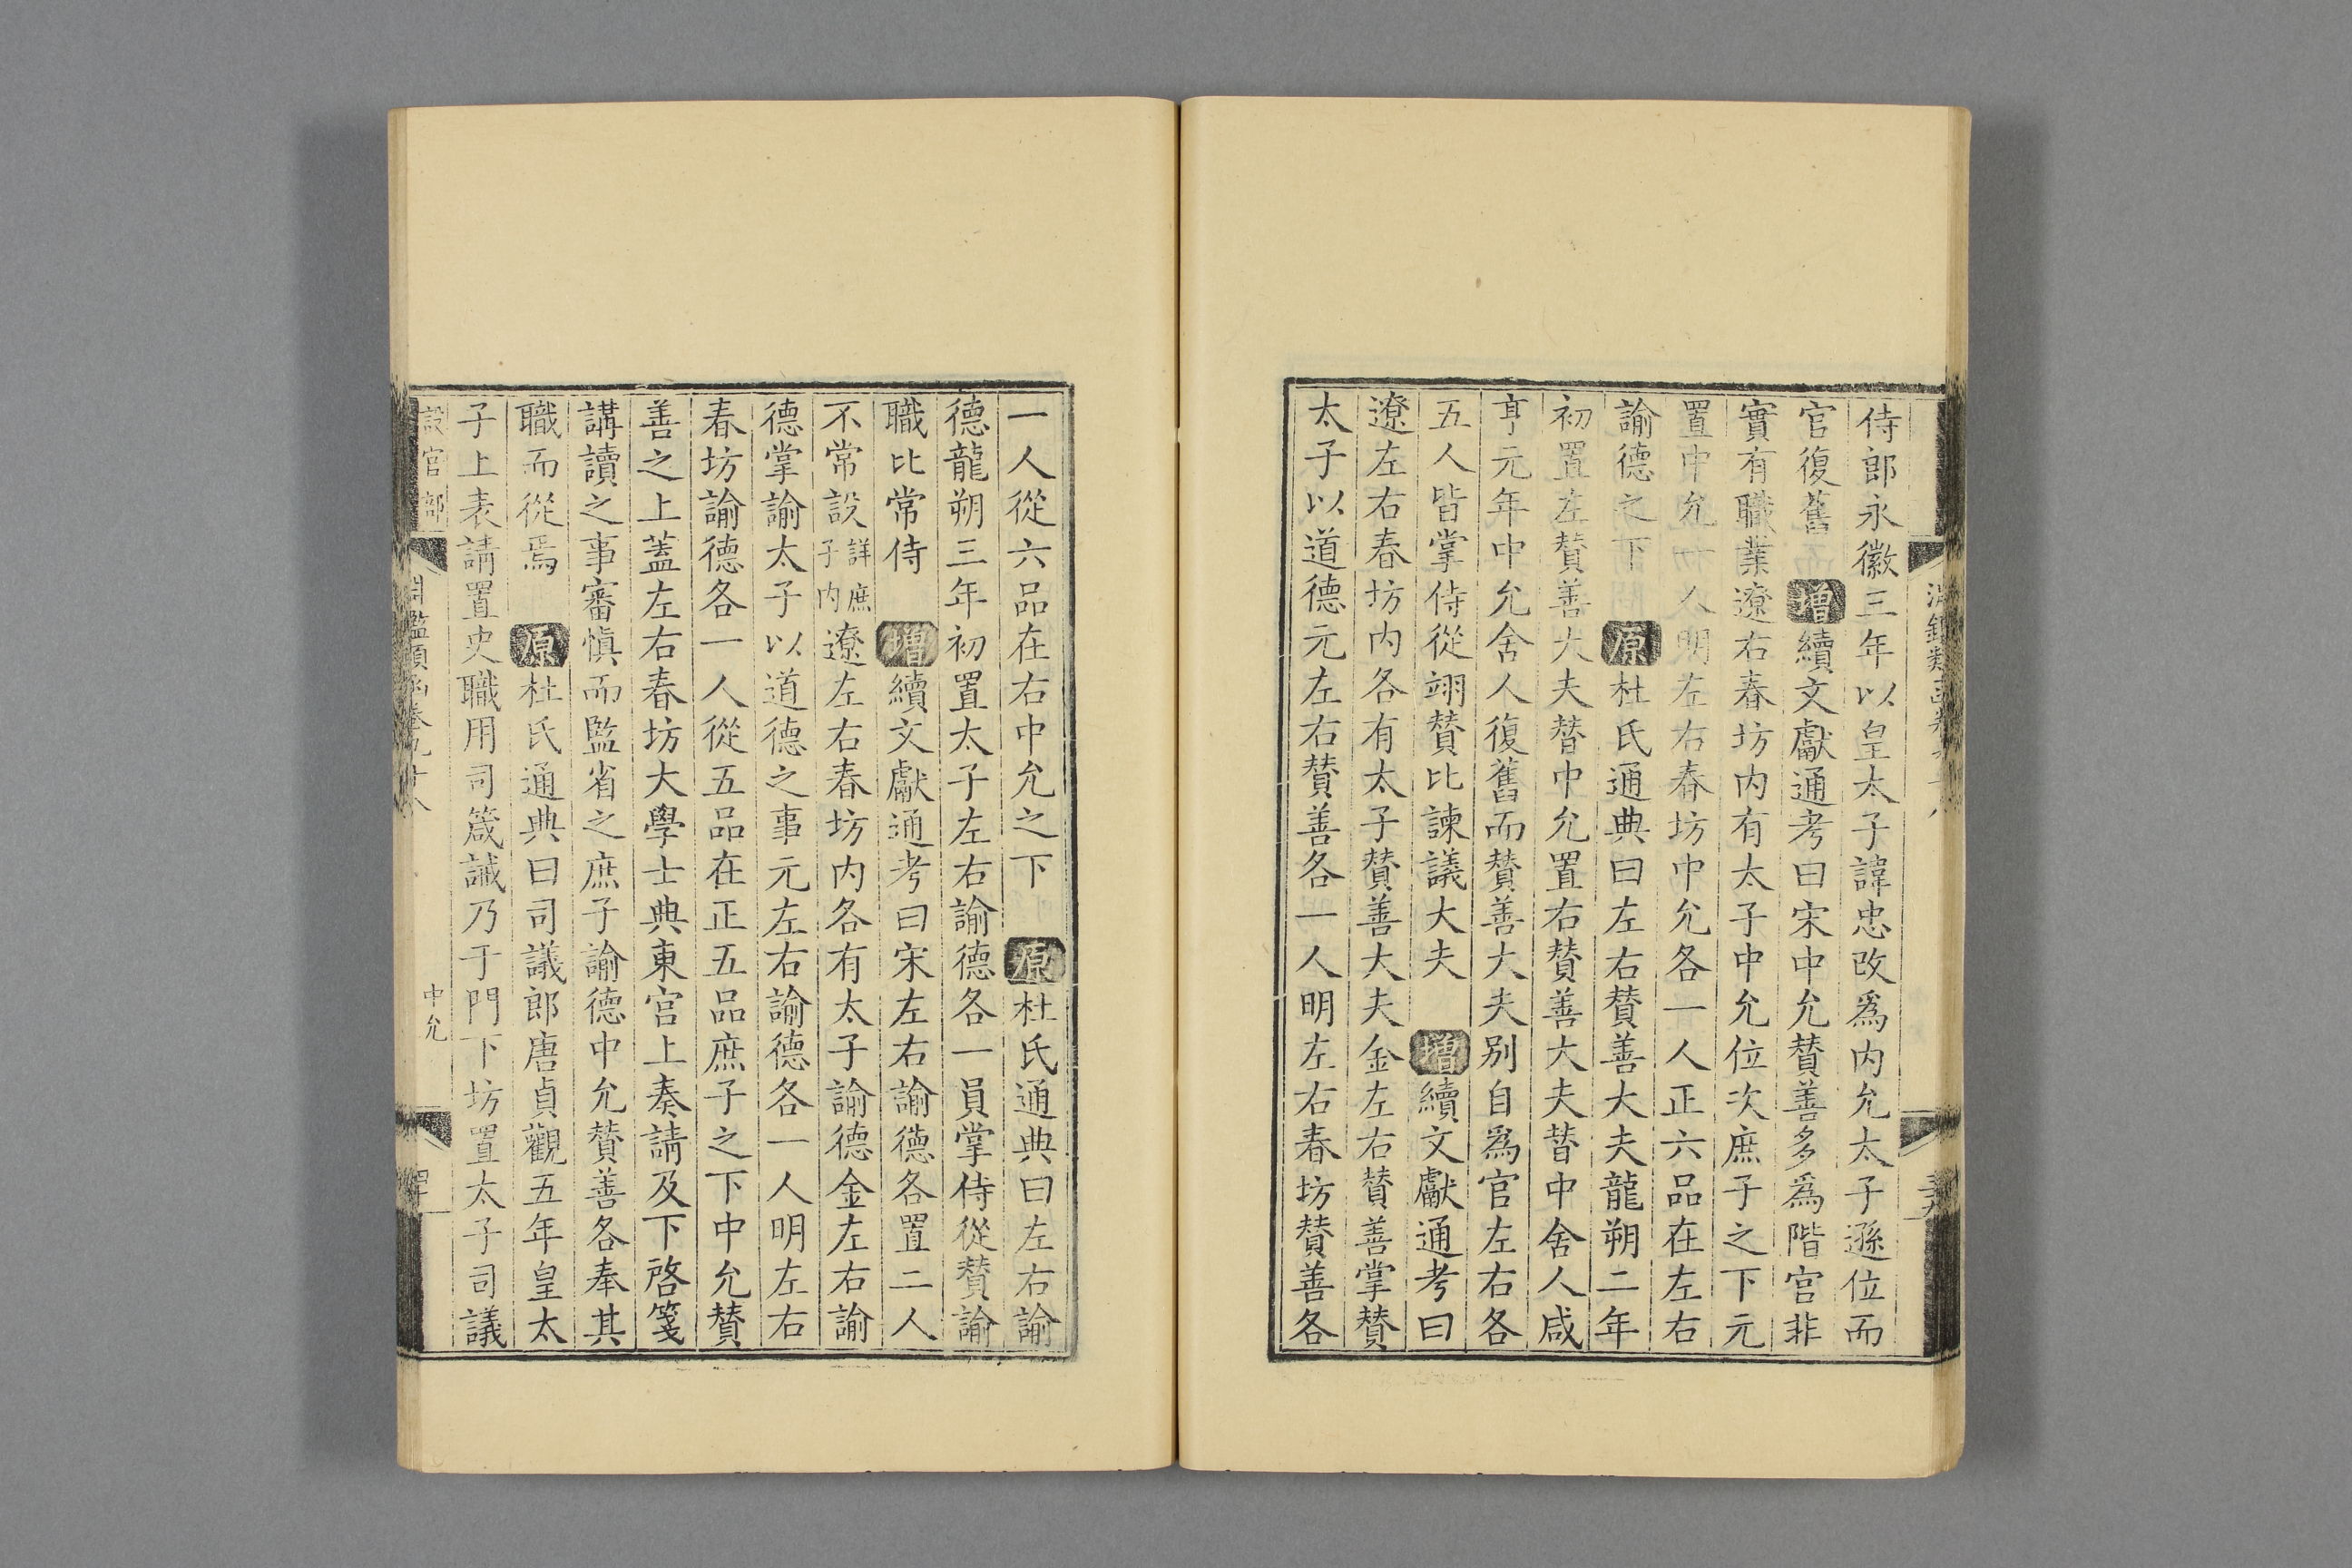 侍郎永徽三年以皇太子諱忠改爲内允太子遜位而
官復舊 增 續文獻通考曰宋中允賛善多爲階官非
實有職業遼右春坊内有太子中允位次庶子之下元
置中允 人明左右春坊中允各一人正六品在左右
諭德之下 原 杜氏通典曰左右賛善大夫龍朔二年
初置左賛善大夫替中允置右賛善大夫替中舍人咸
亨元年中允舍人復舊而賛善大夫别自爲官左右各
五人皆掌侍從翊賛比諫議大夫 增 續文獻通考曰
遼左右春坊内各有太子賛善大夫金左右賛善掌賛
太子以道德元左右賛善各一人明左右春坊賛善各
一人從六品在右中允之下 原 杜氏通典曰左右諭
德龍朔三年初置太子左右諭德各一員掌侍從賛諭
職比常侍 增 續文獻通考曰宋左右諭德各置二人
不常設詳庶子内遼左右春坊内各有太子諭德金左右諭
德掌諭太子以道德之事元左右諭德各一人明左右
春坊諭德各一人從五品在正五品庶子之下中允賛
善之上蓋左右春坊大學士典東宫上奏請及下啓箋
講讀之事審慎而監省之庶子諭德中允賛善各奉其
職而從焉 原 杜氏通典曰司議郎唐貞觀五年皇太
子上表請置史職用司箴誡乃于門下坊置太子司議
設官部
淵鑑類函卷九十八
中允